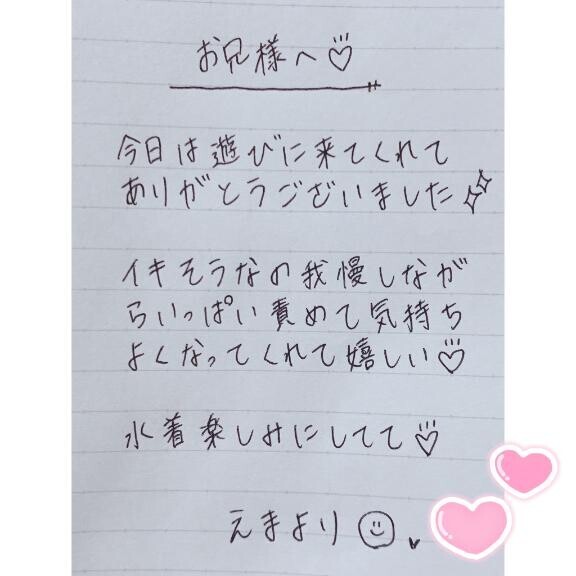 お兄様へ♡
今日は遊びに来てくれて
ありがとうございました✨
イキそうなの我慢しなが
らいっぱい責めて気持ち
よくなってくれて嬉しい♡
水着楽しみにしてて♡
えまより☺